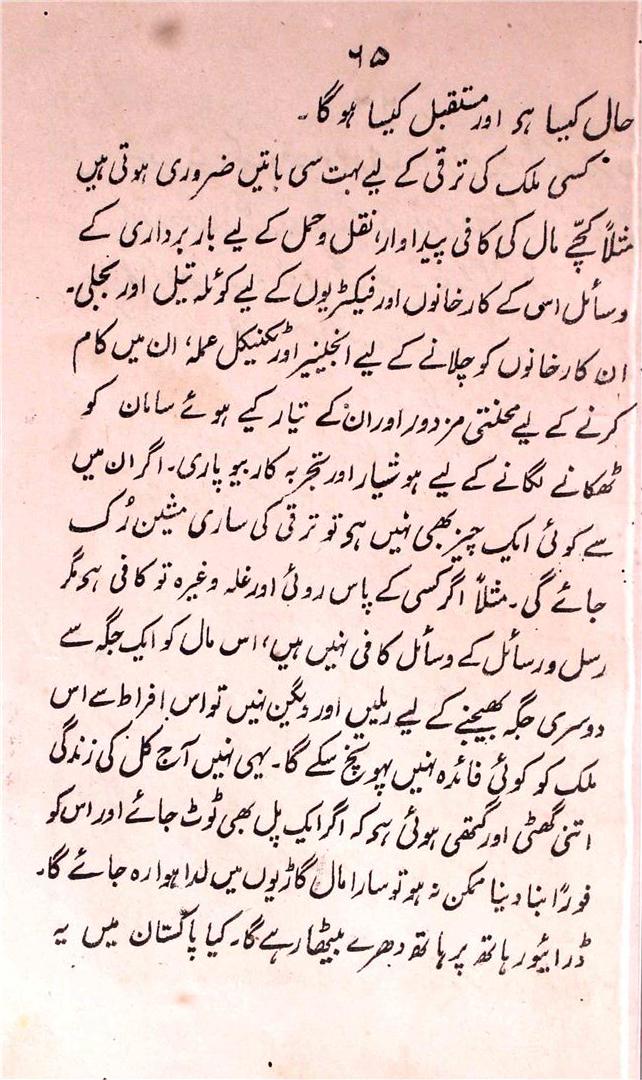 ۶۵
حال کیسا ہو اور مستقبل کیسا ہوگا۔
کسی ملک کی ترقی کے لیے بہت سی باتیں ضروری ہوتی ہیں
مثلاً کچّے مال کی کافی پیداوار، نقل و حمل کے لیے باربرداری کے
وسائل اسی کے کارخانوں اور فیکٹریوں کے لیے کوئلہ تیل اور بجلی۔
ان کارخانوں کو چلانے کے لیے انجینیر اور ٹکنیکل عملہ، ان میں کام
کرنے کے لیے محنتی مزدور اور اُن کے تیار کیے ہوئے سامان کو
ٹھکانے لگانے کے لیے ہوشیار اور تجربہ کار بیوپاری۔ اگر ان میں
سے کوئی ایک چیز بھی نہیں ہو تو ترقی کی ساری مشین رُک
جائے گی۔ مثلاً اگر کسی کے پاس روئی اور غلہ وغیرہ تو کافی ہو مگر
رسل و رسائل کے وسائل کافی نہیں ہیں، اس مال کو ایک جگہ سے
دوسری جگہ بھیجنے کے لیے ریلیں اور ویگن نہیں تو اس افراط سے اس
ملک کو کوئی فائدہ نہیں پہونچ سکے گا۔ یہی نہیں آج کل کی زندگی
اتنی گھٹی اور گتھی ہوئی ہو کہ اگر ایک پل بھی ٹوٹ جائے اور اس کو
فوراً بنا دینا ممکن نہ ہو تو سارا مال گاڑیوں میں لدا ہوا رہ جائے گا۔
ڈرائیور ہاتھ پر ہاتھ دھرے بیٹھا رہے گا۔ کیا پاکستان میں یہ